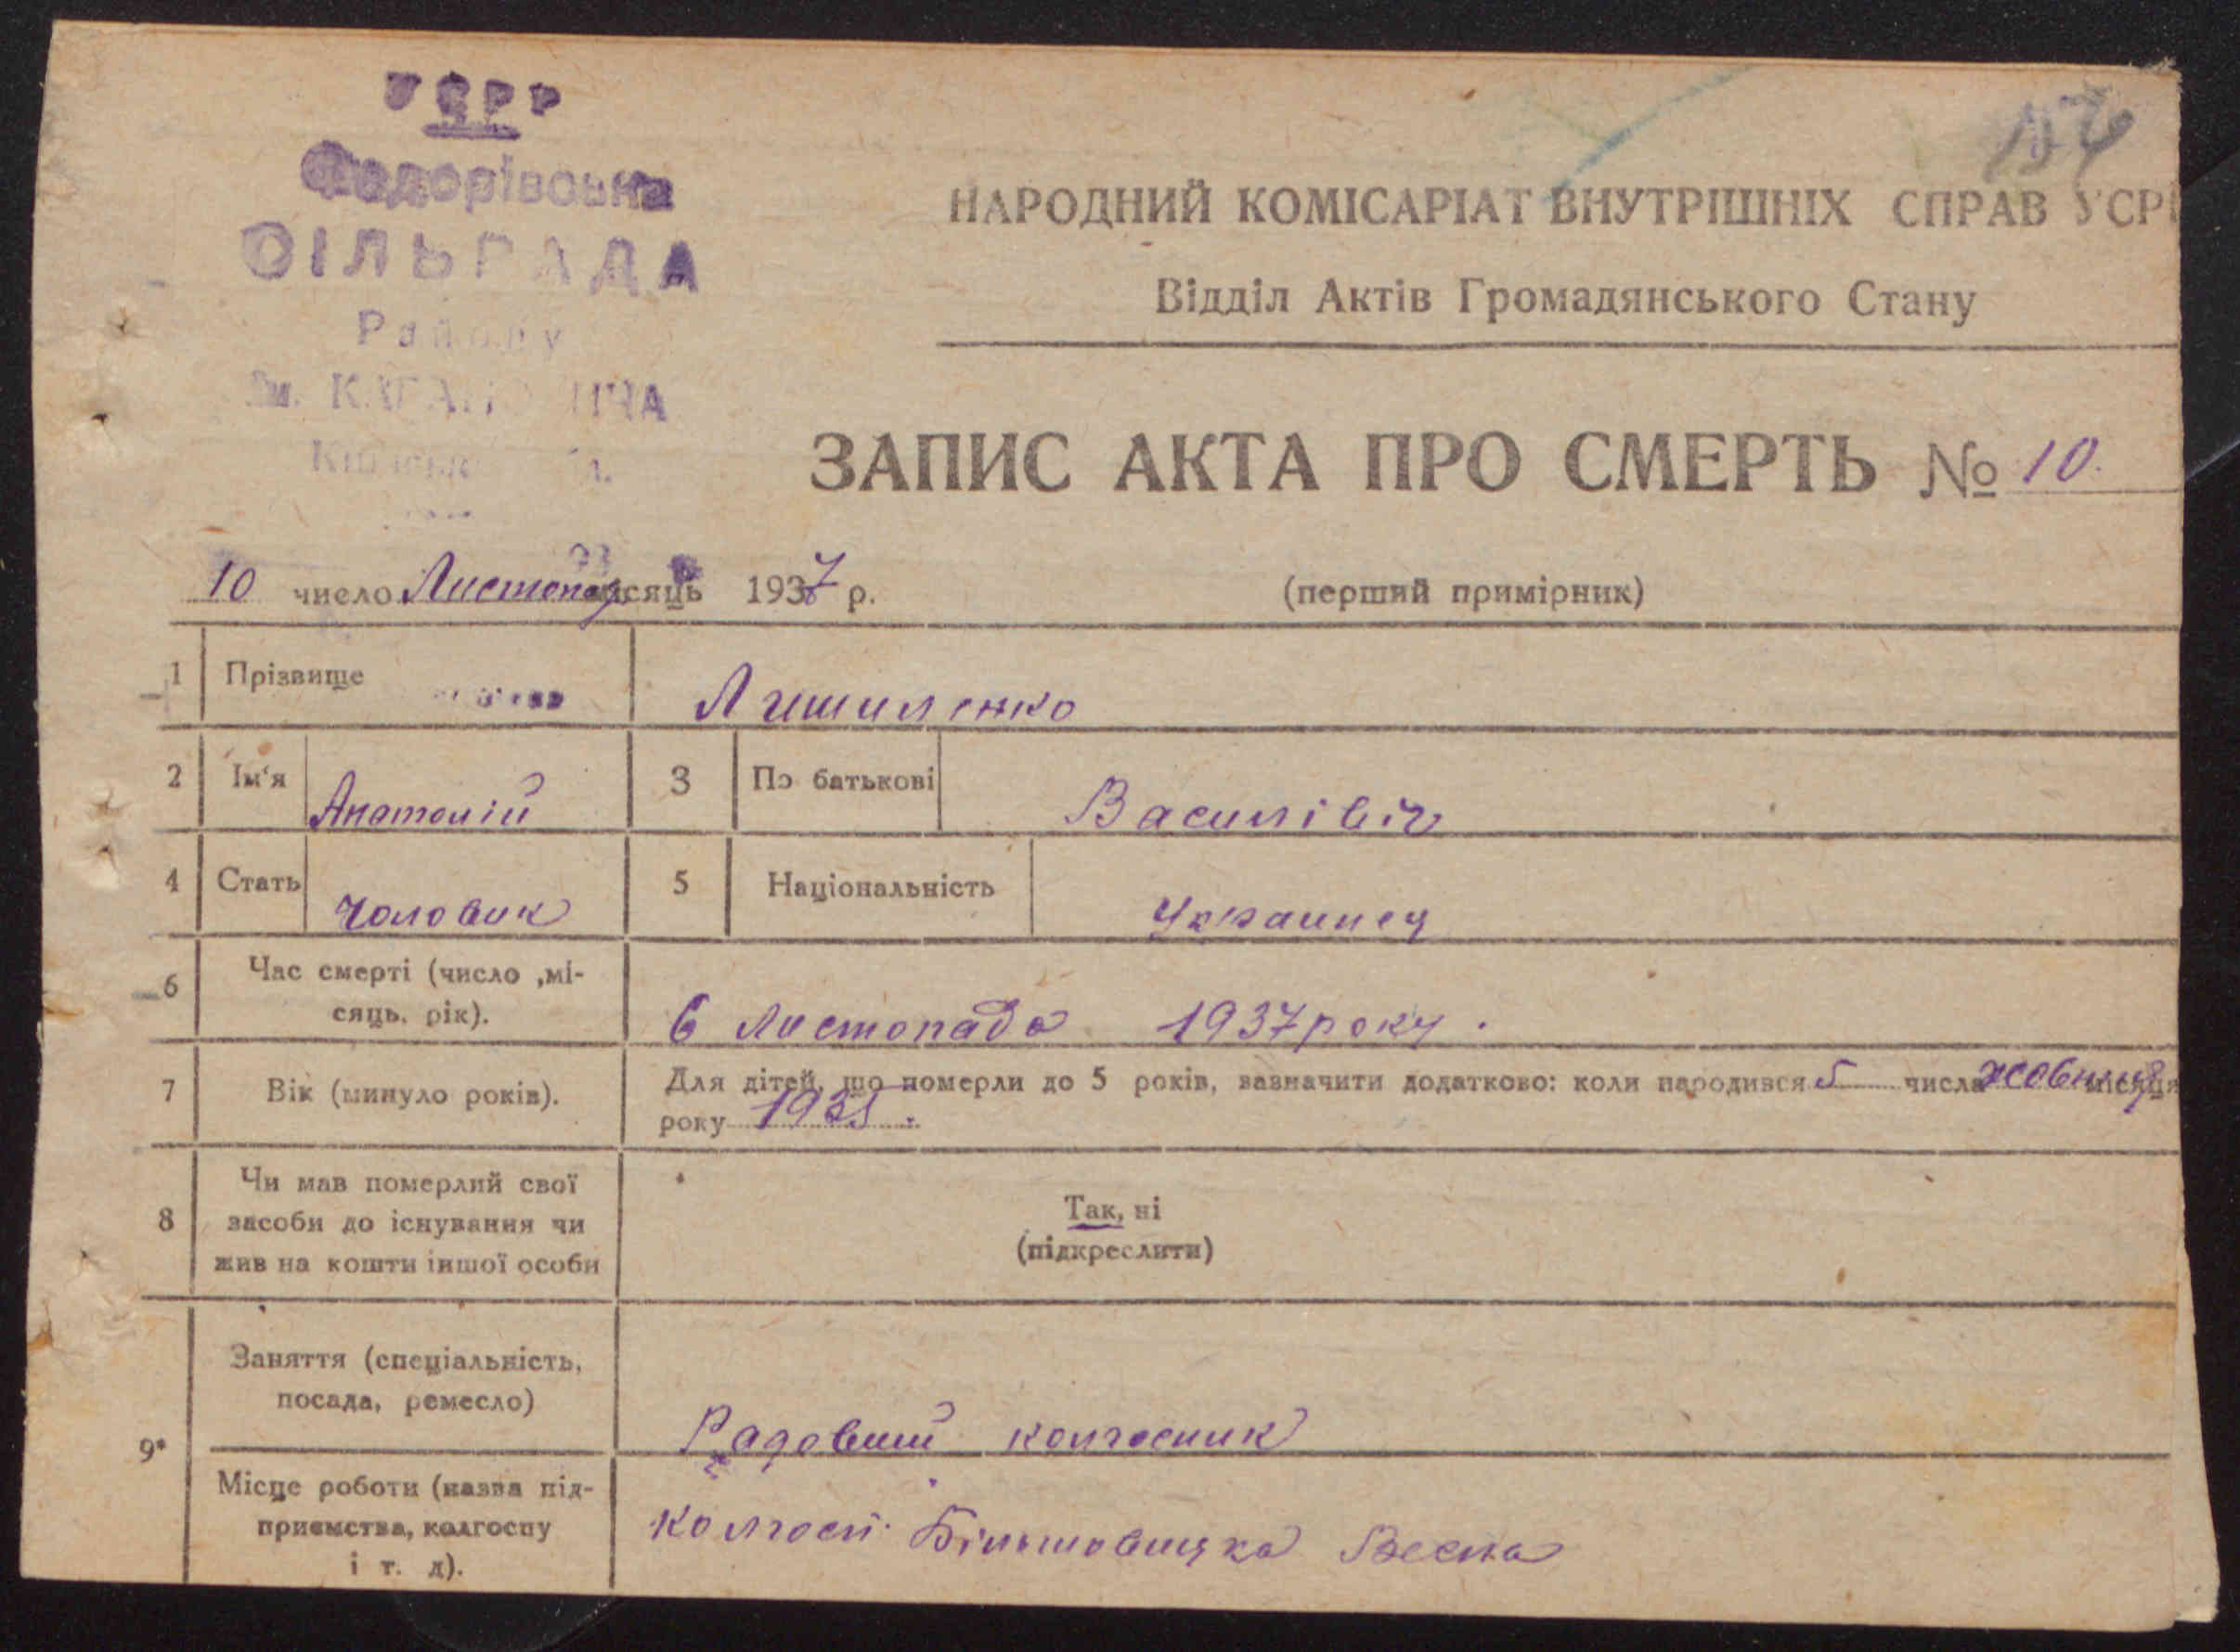 УСРР
Федорівська
СІЛЬРАДА
Району
Ім. КАГАНОВИЧА
НАРОДНИЙ КОМІСАРІАТ ВНУТРІШНІХ СПРАВ УСР
Відділ Актів Громадянського Стану
ЗАПИС АКТА ПРО СМЕРТЬ № 10.
10 число Листопад місяць 1937 р.
(перший примірник)
1 Прізвище
2 Ім'я Анатолій 3 По батькові Василівіч
4 Стать Чоловик 5 Національність Украинец
6 Час смерті (число ,мі-
сяць, рік).
6 Листопада 1937 року.
7 Вік (минуло років). Для дітей, що померли до 5 років, зазначити додатково: коли народився 5 числа жовтня місяця
року
8 Чи мав померлий свої
засоби до існування чи
жив на кошти іншої особи
Так, ні
(підкреслити)
9* Заняття (спеціальність,
посада, ремесло)
Радовий колгосник
Місце роботи (назва під-
приємства, колгоспу
і т. д).
колгосп Більшовицка Весна